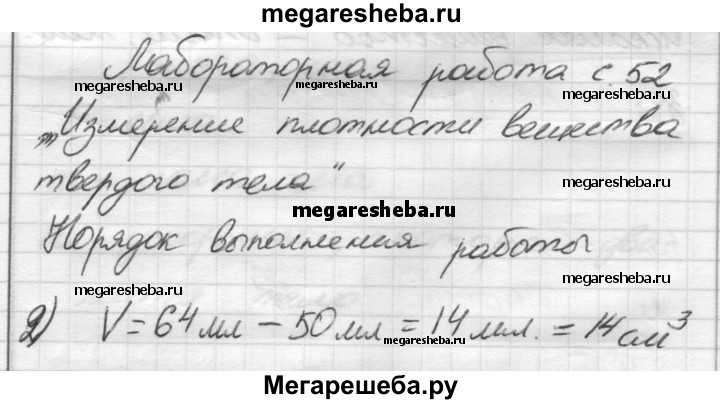 megaresheba.ru
Лабораторная работа с. 52
megaresheba.ru megaresheba.ru megaresheba.ru
"Измерение плотности вещества
твердого тела"
megaresheba.ru megaresheba.ru
megaresheba.ru
Порядок выполнения работы
megaresheba.ru megaresheba.ru
2) V = 64 мл – 50 мл = 14 мл. = 14 см³
megaresheba.ru
Мегарешеба.ру